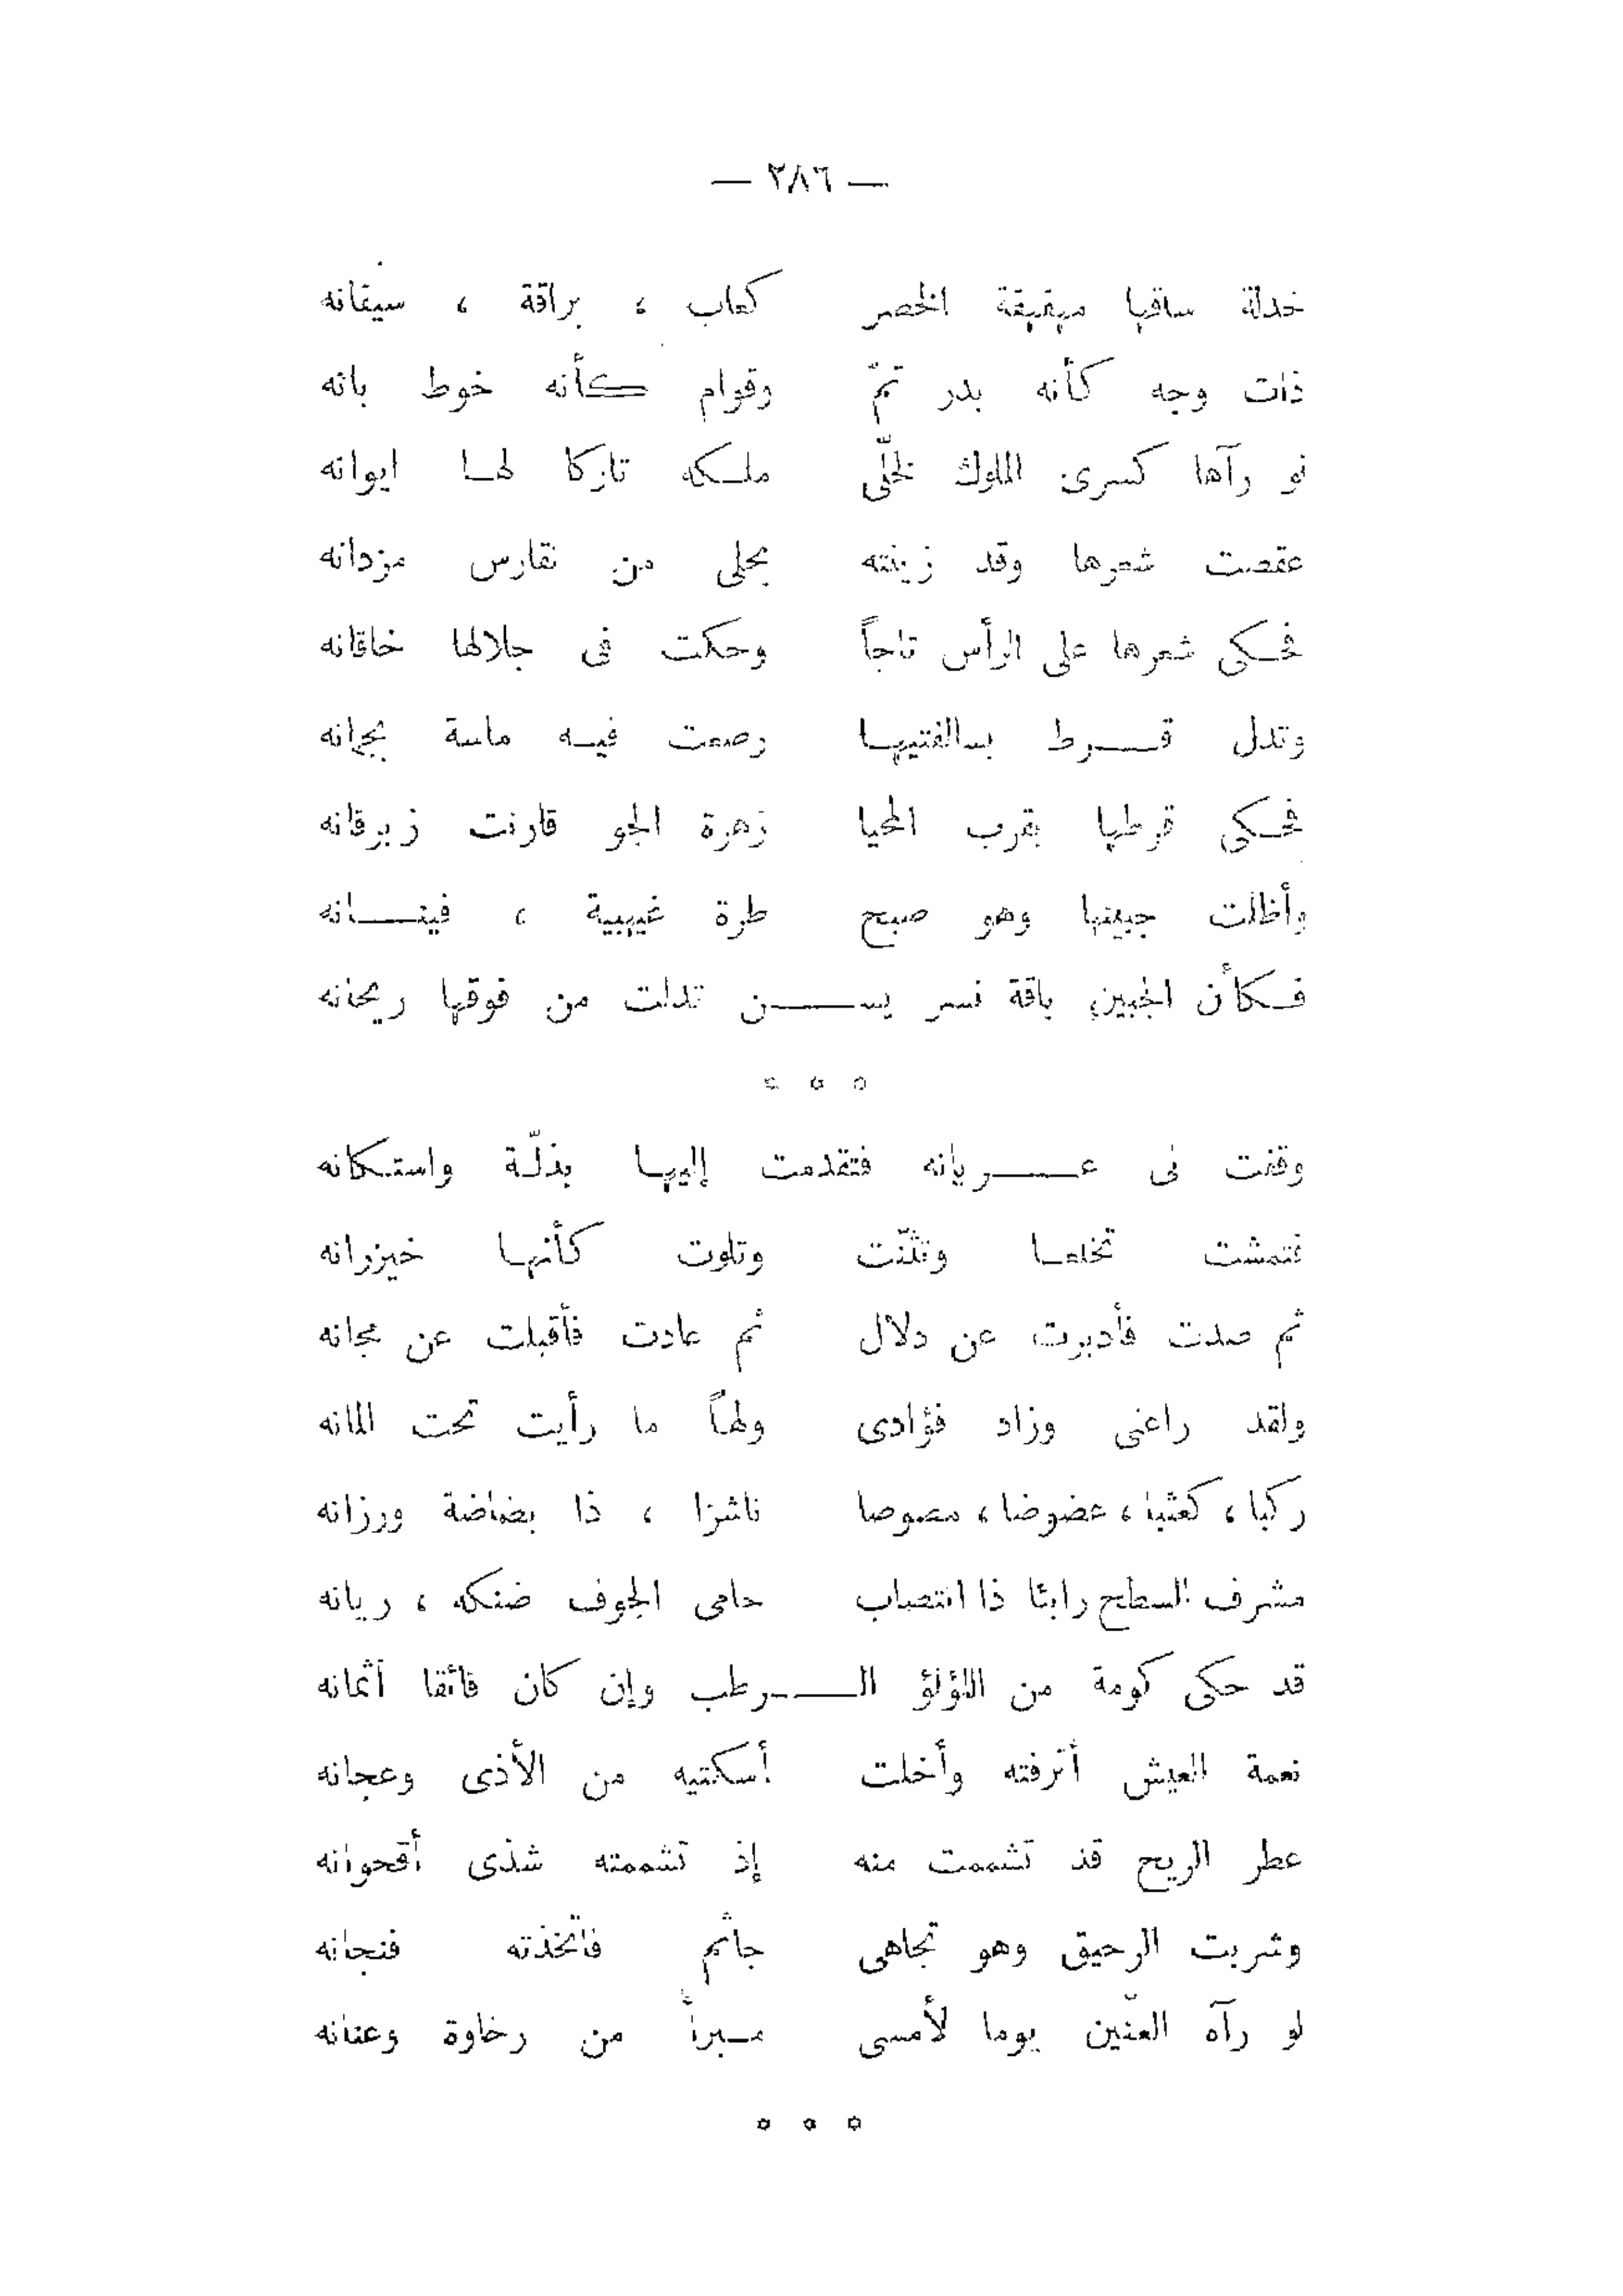 — ٢٨٦ —
خدلة ساقها مهفهفة الخصر كعاب ، براقة ، سيفانه
ذات وجه كأنه بدر تمّ وقوام كأنه خوط بانه
لو رآها كسرى الملوك لخلّى ملكه تاركا لها ايوانه
عقصت شعرها وقد زينته بحلى من نقارس مزدانه
فحكى شعرها على الرأس تاجاً وحكت فى جلالها خاقانه
وتدل قرط بسالفتيها رصعت فيه ماسة بجمانه
فحكى قرطها بقرب المحيا زهرة الجو قارنت زبرقانه
وأظلت جبينها وهو صبح طرة غيهبية ، فينانه
فكأن الجبين باقة نسر ين تدلت من فوقها ريحانه
* * *
وقفت لى عريانه فتقدمت إليها بذلّة واستكانه
فتمشت تخلعا وتثنّت وتلوت كأنها خيزرانه
ثم صدت فأدبرت عن دلال ثم عادت فأقبلت عن مجانه
ولقد راعنى وزاد فؤادى ولهاً ما رأيت تحت المانه
ركبا ، كعثبا ، عضوضا ، مصوصا ناشزا ، ذا بضاضة ورزانه
مشرف السطح رابئا ذا انتصاب حامى الجوف ضنكه ، ريانه
قد حكى كومة من اللؤلؤ الرطب وإن كان فائقا أثمانه
نعمة العيش أترفته وأخلت أسكتيه من الأذى وعجانه
عطر الريح قد تشممت منه إذ تشممته شذى أقحوانه
وشربت الرحيق وهو تجاهى جاثم فاتخذته فنجانه
لو رآه العنّين يوما لأمسى مبرأ من رخاوة وعنانه
* * *